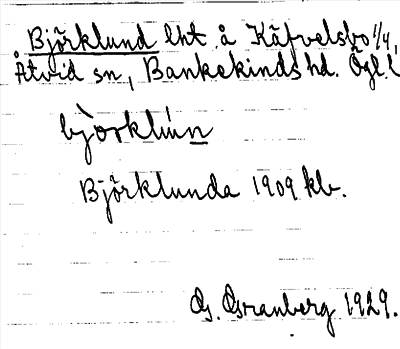 Björklund lht å Käfvelsbo 1/4,
Åtvid sn, Bankekinds hd. Ögl. l
björklún
Björklunda 1909 kb.
G. Granberg 1929.